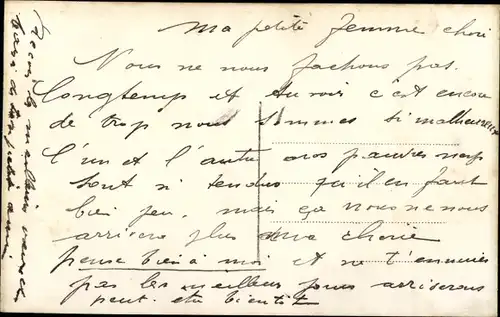 Ma petite femme cheri
Nous ne nous fachons pas.
Longtemp et un soir c'est encore
de trop nous sommes si malheureux
l'un et l'autre nos pauvres nerfs
sont si tendus qu'il en faut
bien peu, mais ça nous ne nous
arrivera plus ma cherie
pense bien à moi et ne t'ennuies
pas les meilleur jours arriverons
peut. etre bientôt
Recois les meilleurs
baisers de ton petit ami